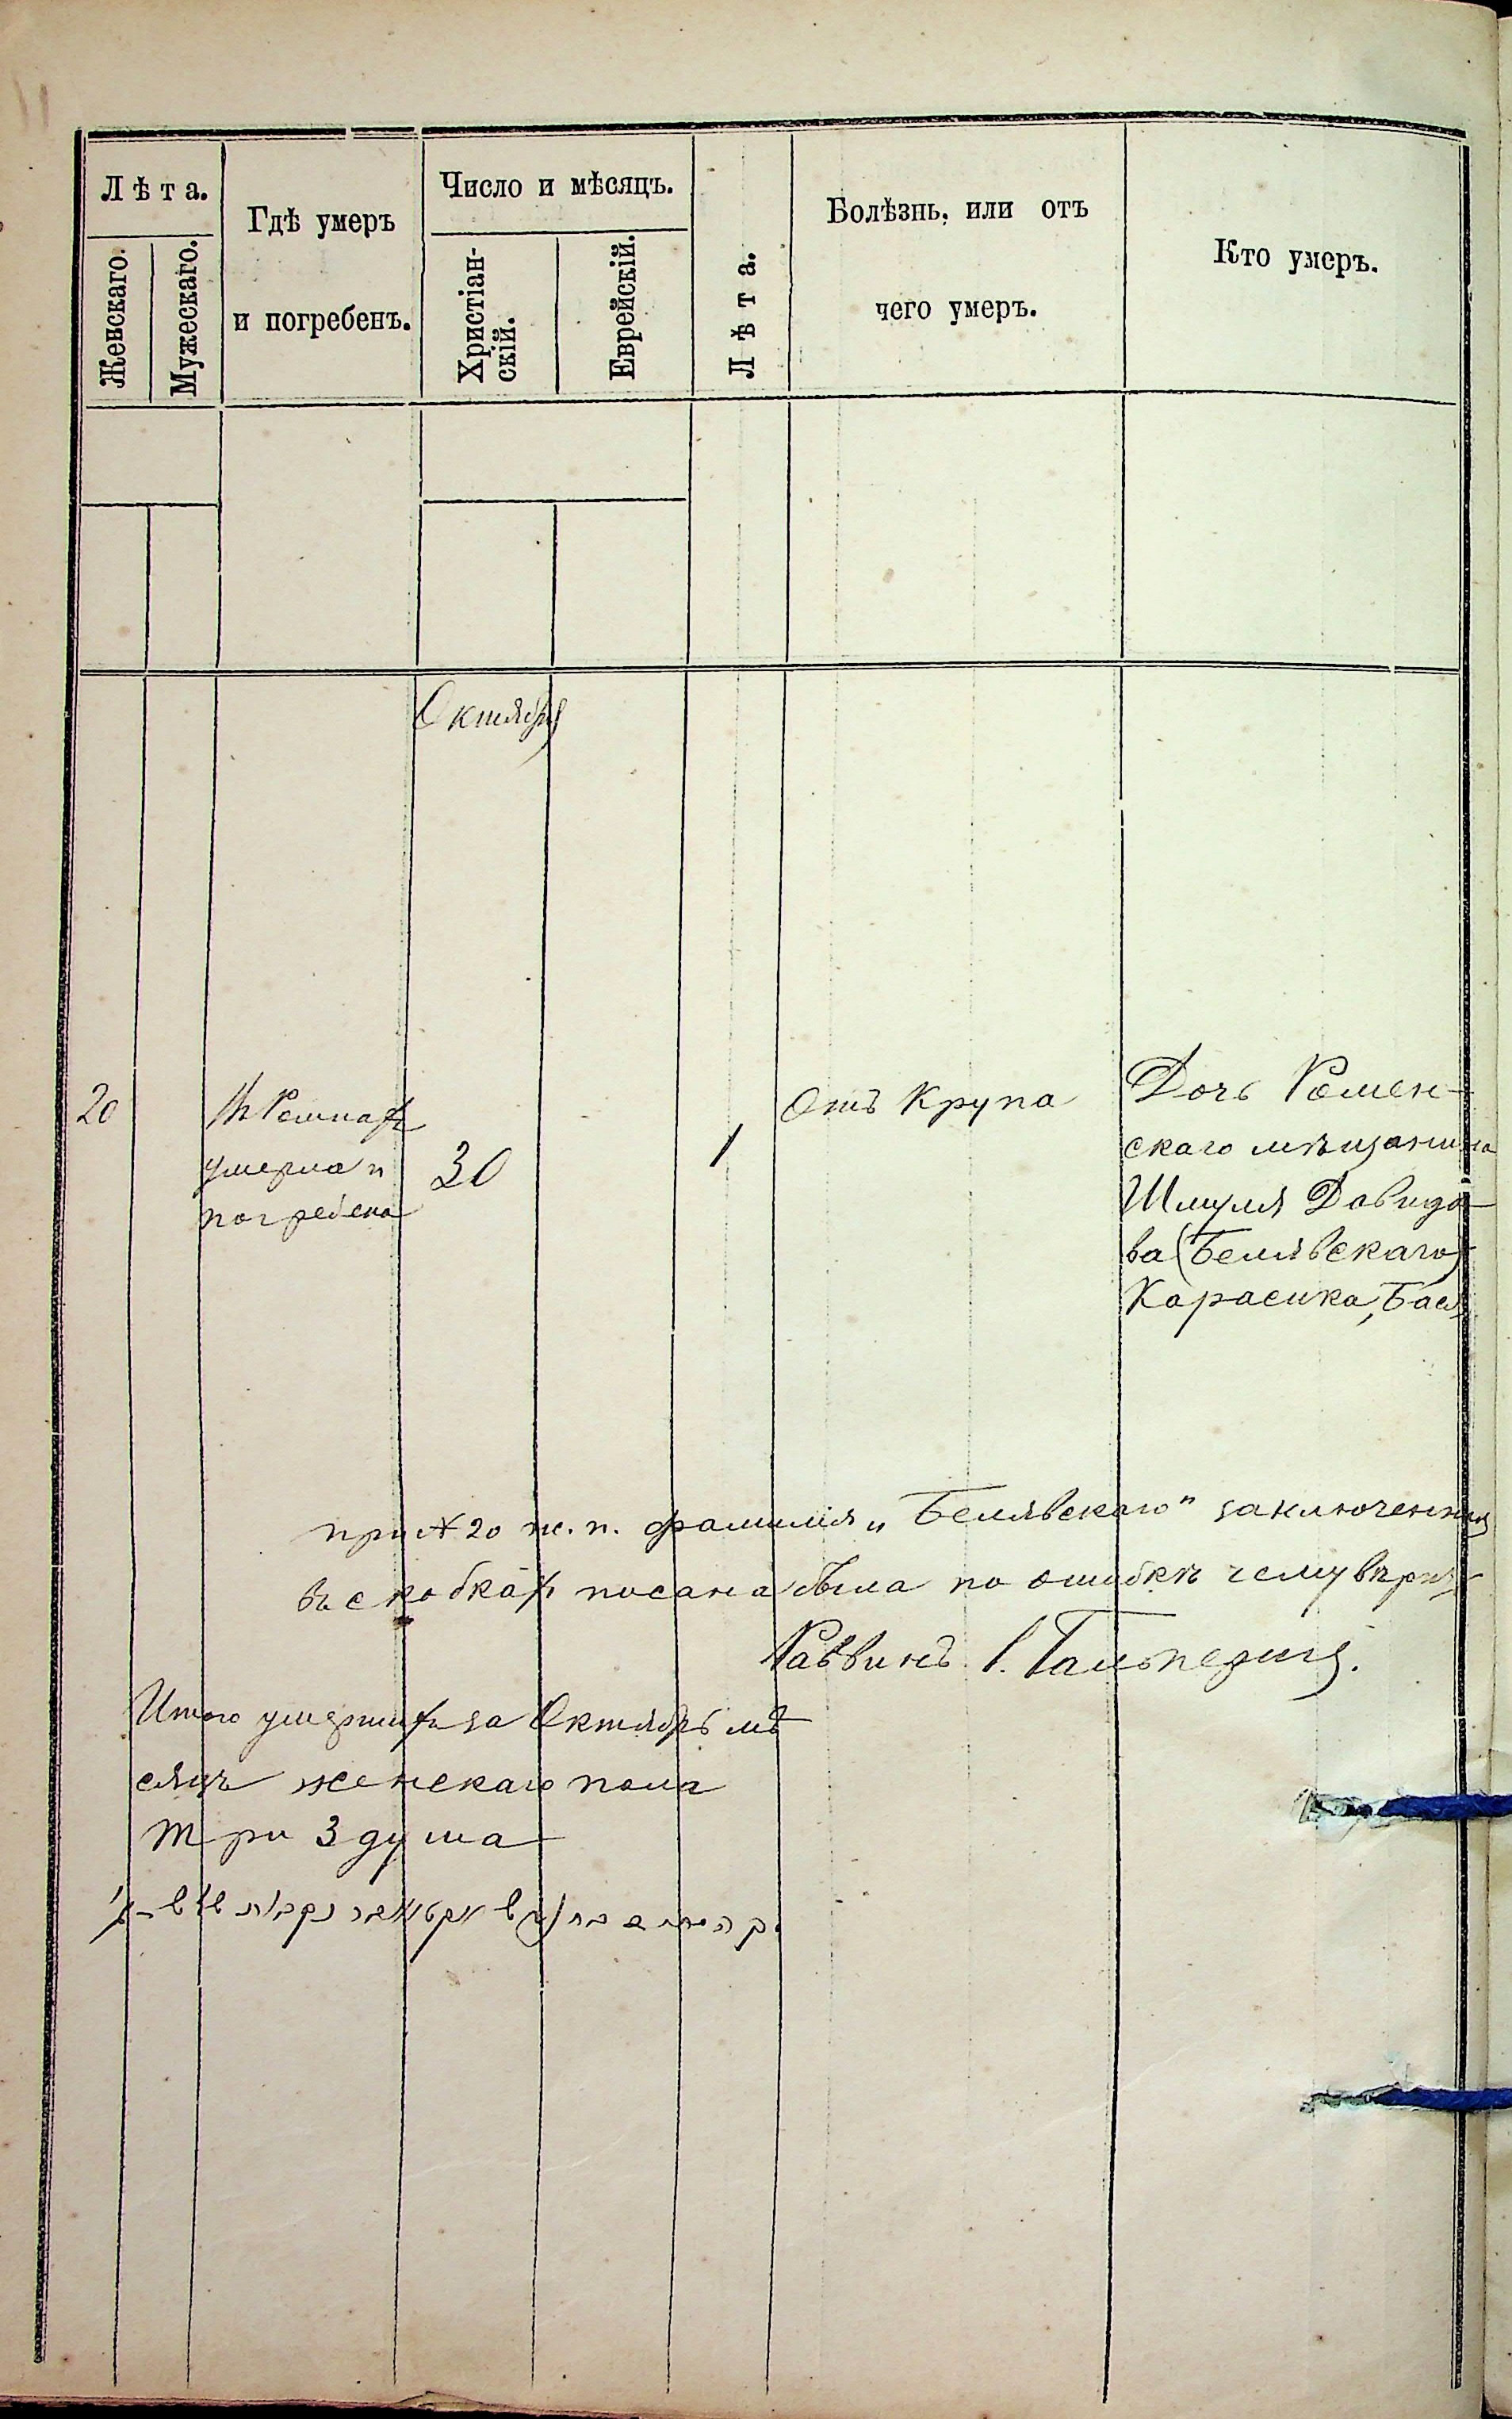 11
Лѣта.
Женскаго.
Мужескаго.
Гдѣ умеръ
и погребенъ.
Число и мѣсяцъ.
Христіан-
скій.
Еврейскій.
Лѣта.
Болѣзнь, или отъ
чего умеръ.
Кто умеръ.
Октября
20
Въ Ромнахъ
умерла и
погребена
30
1
Отъ Крупа
Дочь Ромен-
скаго мѣщанина
Шмуля Давидо-
ва (Белявскаго)
Карасика, Бася
при № 20 ж. п. фамилія „Белявскаго" заключенная
въ скобкахъ писана была по ошибкѣ чему вѣрны
Раввинъ І. Гальперинъ.
Итого умершихъ за Октябрь мѣ-
сяцъ женскаго пола
три 3 душа